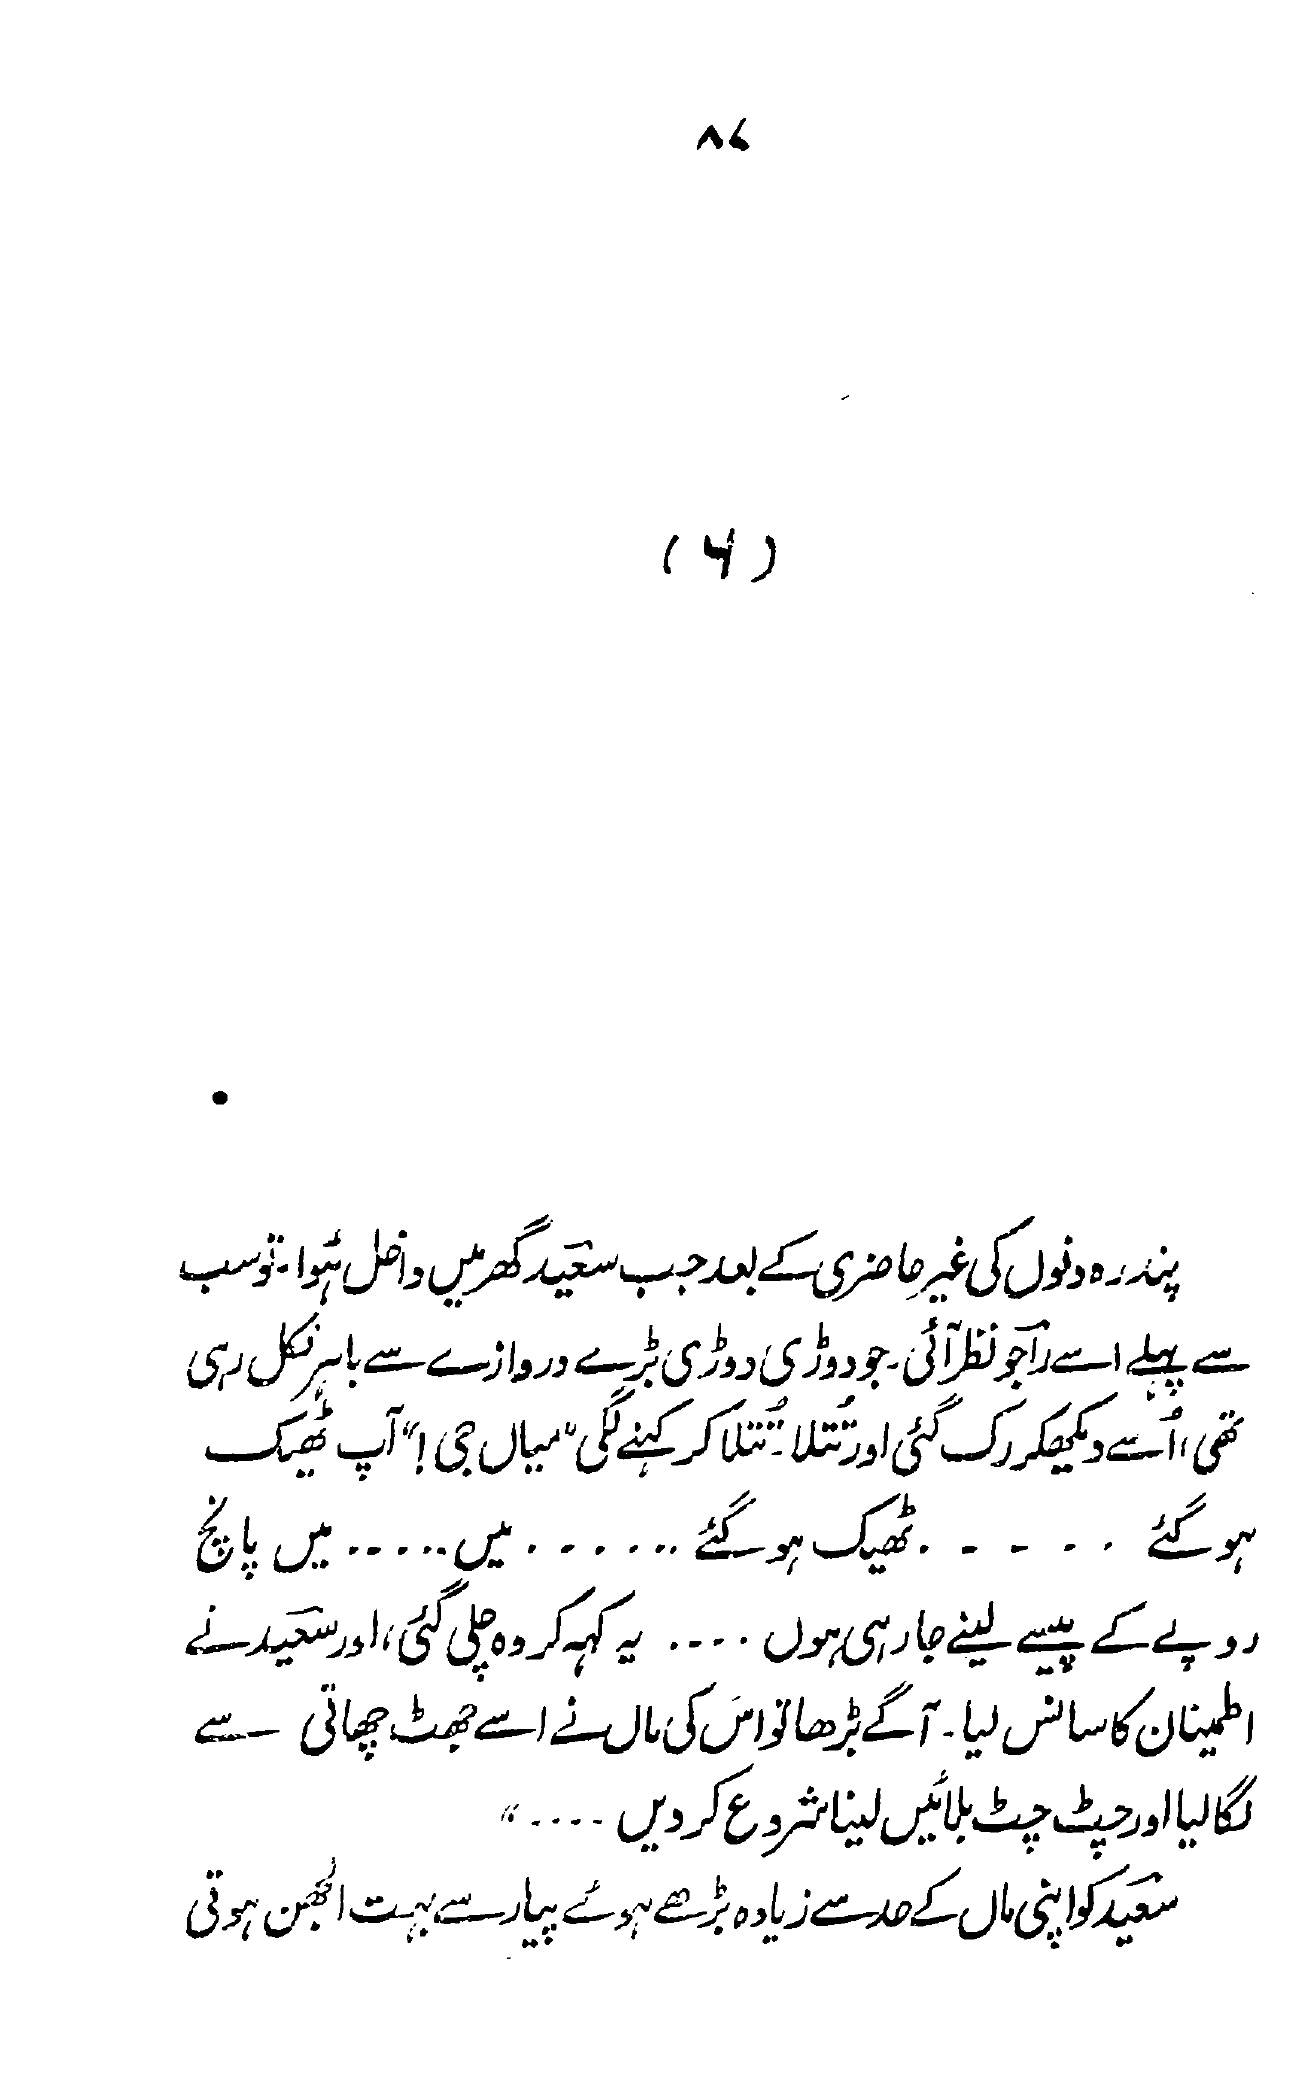 ۸۷
(۶)
پندرہ دنوں کی غیر حاضری کے بعد جب سعید گھر میں داخل ہُوا۔ تو سب
سے پہلے اسے راجو نظر آئی۔ جو دوڑی دوڑی بڑے دروازے سے باہر نکل رہی
تھی، اُسے دیکھکر رک گئی اور تُتلا۔ تُتلا کر کہنے لگی "میاں جی!" آپ ٹھیک
ہو گئے ..... ٹھیک ہو گئے ...... میں ..... میں پانچ
روپے کے پیسے لینے جا رہی ہوں .... یہ کہہ کر وہ چلی گئی، اور سعید نے
اطمینان کا سانس لیا۔ آگے بڑھا تو اس کی ماں نے اسے جھٹ چھاتی سے
لگا لیا اور چٹ چٹ بلائیں لینا شروع کر دیں ...."
سعید کو اپنی ماں کے حد سے زیادہ بڑھے ہوئے پیار سے بہت الجھن ہوتی